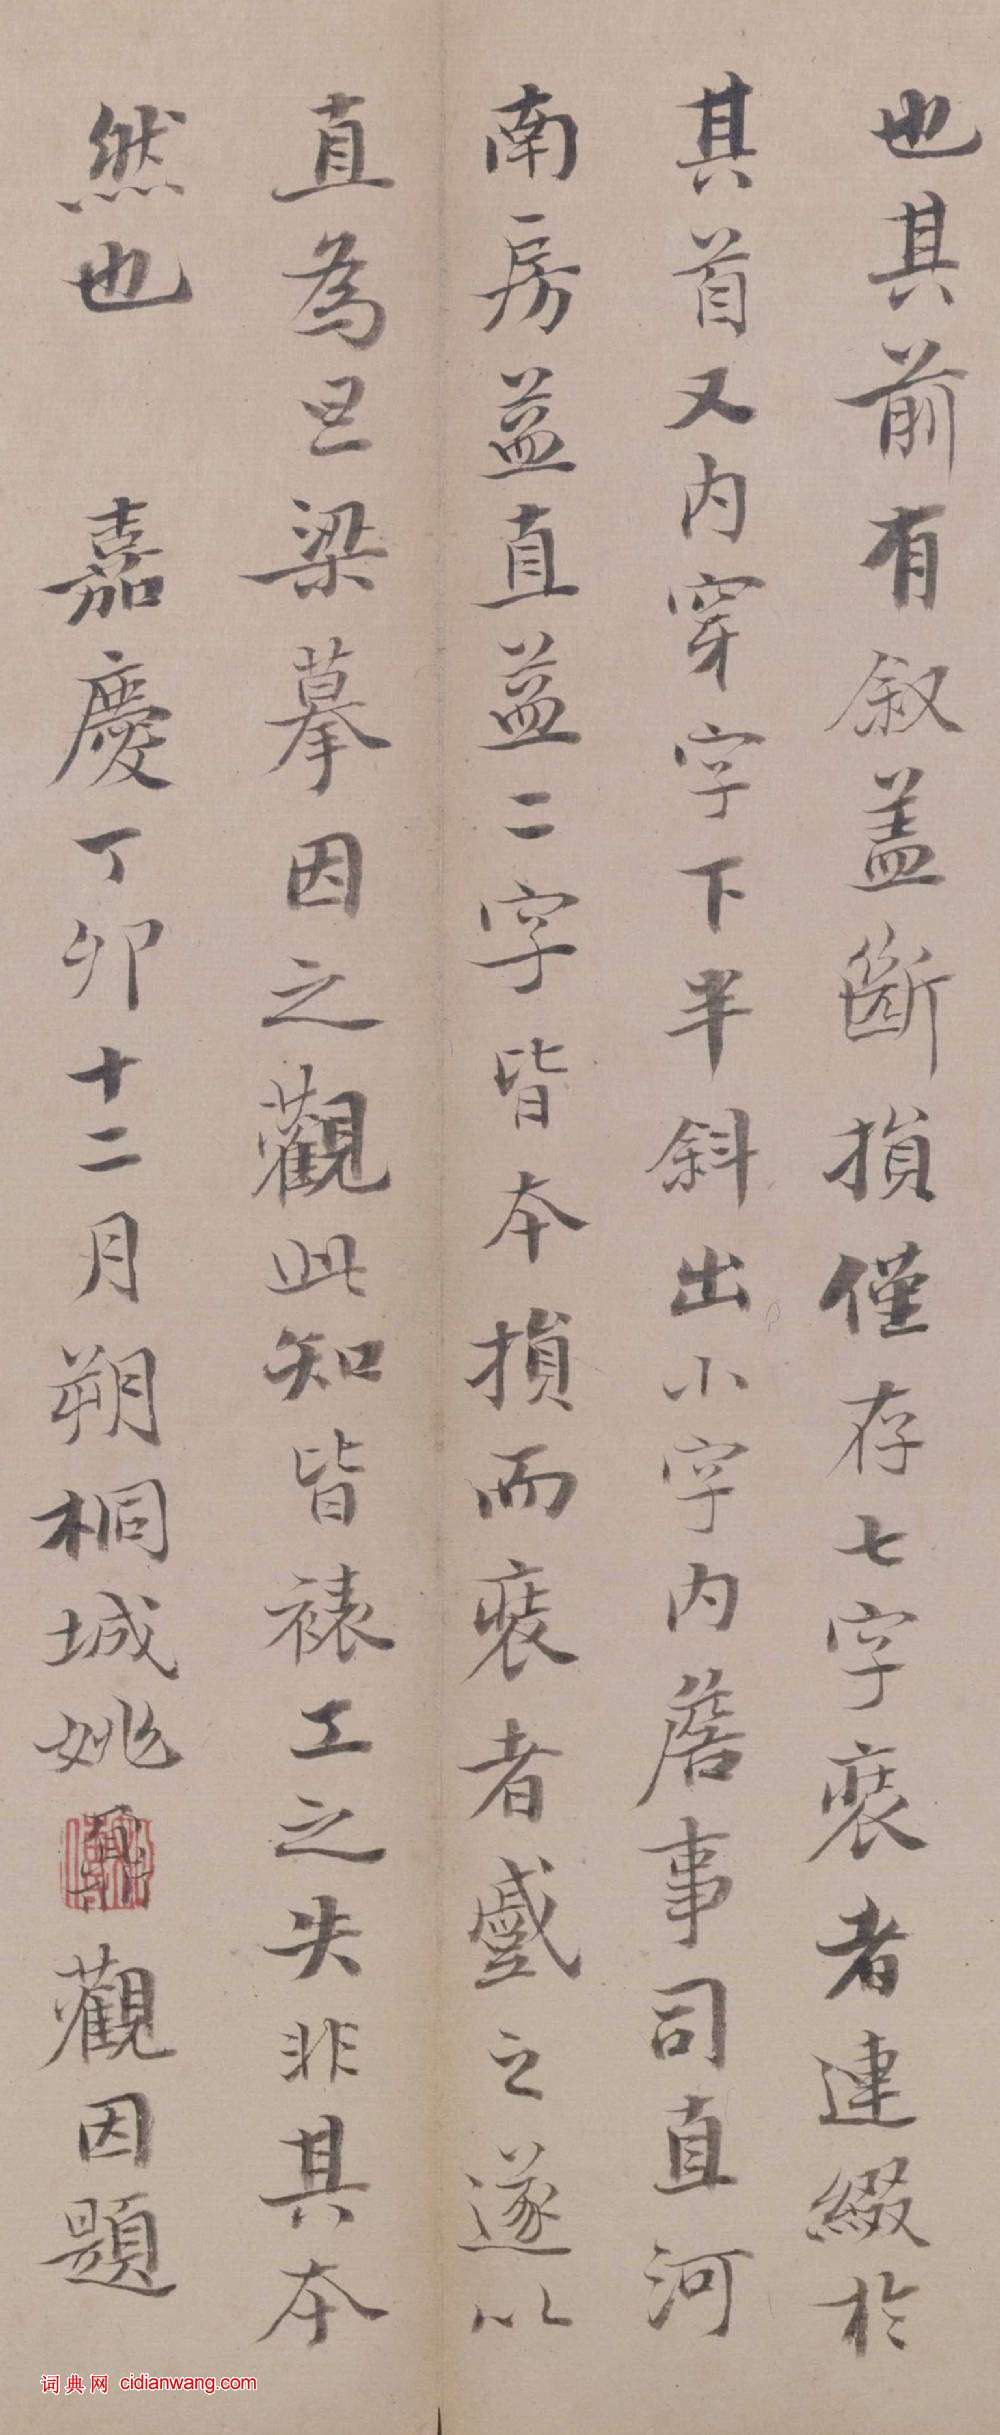 也其前有叙盖斷損僅存七字裝者連綴於
其首又内穿字下半斜出小字内詹事司直河
南房益直益二字皆本損而裝者戲之遂以
直為旦梁摹因之觀此知皆裱工之失非其本
然也 嘉慶丁卯十二月朔桐城姚鼐觀因題
词典网 cidianwang.com